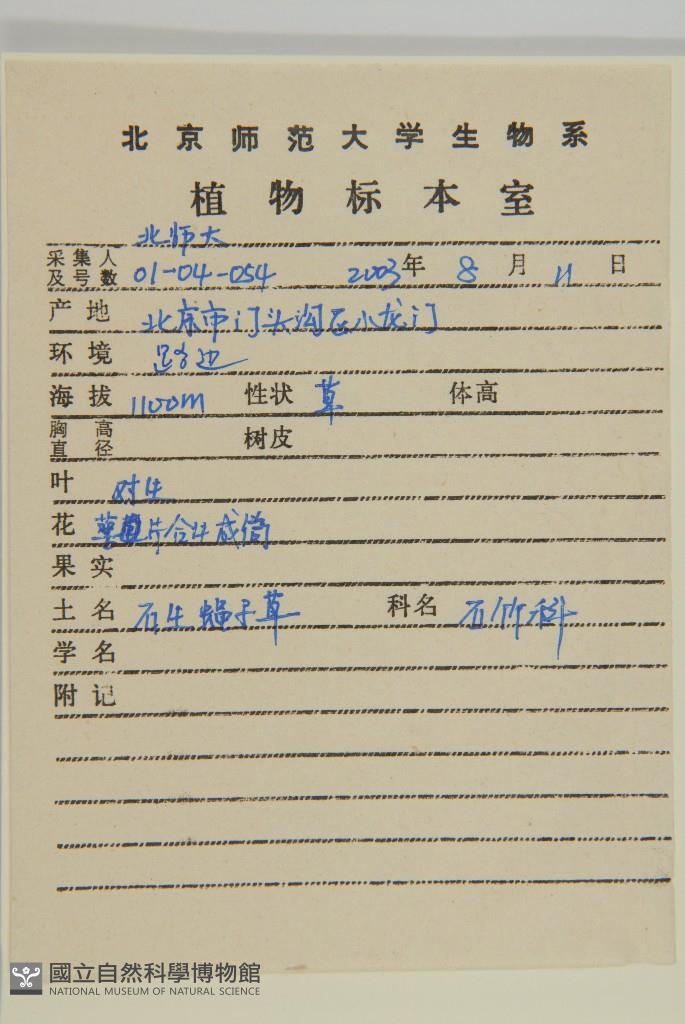 北京师范大学生物系
植物标本室
采集人及号数 北师大 01-04-054 2003年 8月 11日
产地 北京市门头沟区小龙门
环境 路边
海拔 1100m 性状 草 体高
胸高直径 树皮
叶 对生
花 萼片合生成筒
果实
土名 石生蝇子草 科名 石竹科
学名
附记
國立自然科學博物館
NATIONAL MUSEUM OF NATURAL SCIENCE